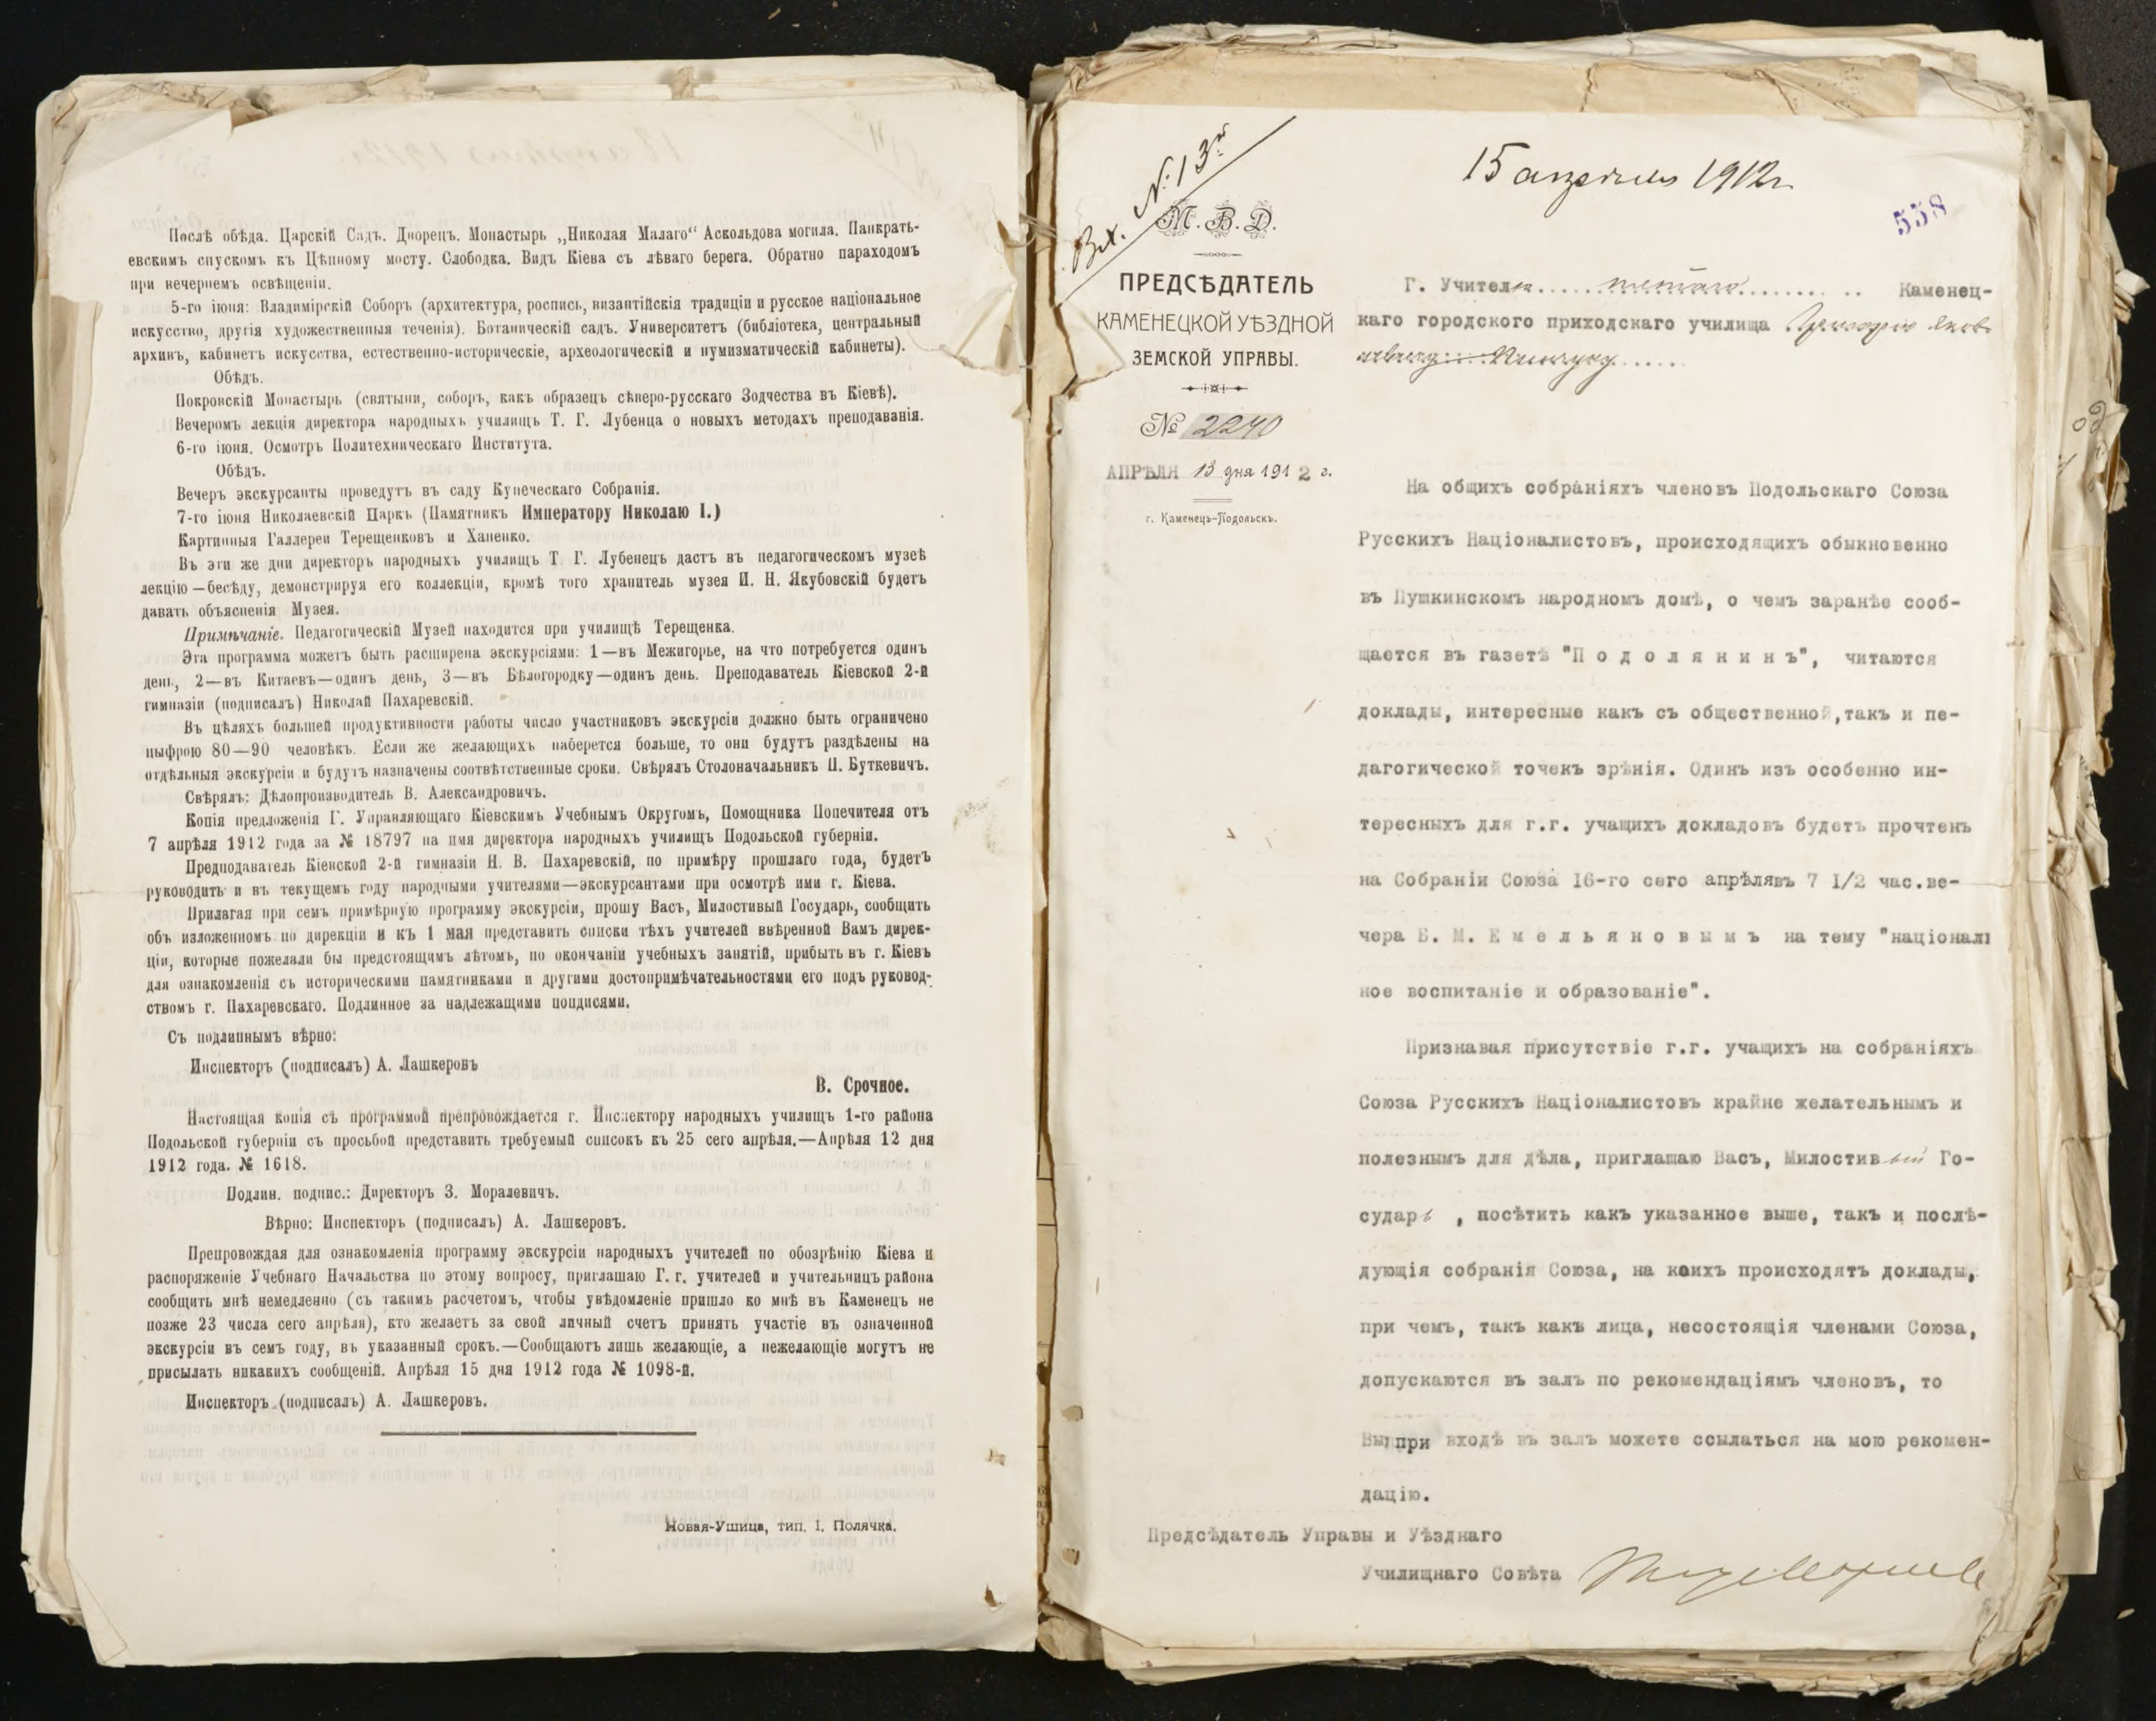 Послѣ обѣда. Царскій Садъ. Дворецъ. Монастырь „Николая Малаго“ Аскольдова могила. Панкрать-
евскимъ спускомъ къ Цѣпному мосту. Слободка. Видъ Кіева съ лѣваго берега. Обратно параходомъ
при вечернемъ освѣщеніи.
5-го іюня: Владимірскій Соборъ (архитектура, роспись, византійскія традиціи и русское національное
искусство, другія художественныя теченія). Ботаническій садъ. Университетъ (библіотека, центральный
архивъ, кабинетъ искусства, естественно-историческіе, археологическій и нумизматическій кабинеты).
Обѣдъ.
Покровскій Монастырь (святыни, соборъ, какъ образецъ сѣверо-русскаго Зодчества въ Кіевѣ).
Вечеромъ лекція директора народныхъ училищъ Т. Г. Лубенца о новыхъ методахъ преподаванія.
6-го іюня. Осмотръ Политехническаго Института.
Обѣдъ.
Вечеръ экскурсанты проведутъ въ саду Купеческаго Собранія.
7-го іюня Николаевскій Паркъ (Памятникъ Императору Николаю I.)
Картинныя Галлереи Терещенковъ и Ханенко.
Въ эти же дни директоръ народныхъ училищъ Т. Г. Лубенецъ дастъ въ педагогическомъ музеѣ
лекцію—бесѣду, демонстрируя его коллекціи, кромѣ того хранитель музея И. Н. Якубовскій будетъ
давать объясненія Музея.
Примѣчаніе. Педагогическій Музей находится при училищѣ Терещенка.
Эта программа можетъ быть расширена экскурсіями: 1—въ Межигорье, на что потребуется одинъ
день, 2—въ Китаевъ—одинъ день, 3—въ Бѣлогородку—одинъ день. Преподаватель Кіевской 2-й
гимназіи (подписалъ) Николай Пахаревскій.
Въ цѣляхъ большей продуктивности работы число участниковъ экскурсіи должно быть ограничено
цыфрою 80—90 человѣкъ. Если же желающихъ наберется больше, то они будутъ раздѣлены на
отдѣльныя экскурсіи и будутъ назначены соотвѣтственные сроки. Свѣрялъ Столоначальникъ П. Буткевичъ.
Свѣрялъ: Дѣлопроизводитель В. Александровичъ.
Копія предложенія Г. Управляющаго Кіевскимъ Учебнымъ Округомъ, Помощника Попечителя отъ
7 апрѣля 1912 года за № 18797 на имя директора народныхъ училищъ Подольской губерніи.
Предподаватель Кіевской 2-й гимназіи Н. В. Пахаревскій, по примѣру прошлаго года, будетъ
руководить и въ текущемъ году народными учителями—экскурсантами при осмотрѣ ими г. Кіева.
Прилагая при семъ примѣрную программу экскурсіи, прошу Васъ, Милостивый Государь, сообщить
объ изложенномъ по дирекціи и къ 1 мая представить списки тѣхъ учителей ввѣренной Вамъ дирек-
ціи, которые пожелали бы предстоящимъ лѣтомъ, по окончаніи учебныхъ занятій, прибыть въ г. Кіевъ
для ознакомленія съ историческими памятниками и другими достопримѣчательностями его подъ руковод-
ствомъ г. Пахаревскаго. Подлинное за надлежащими подписями.
Съ подлиннымъ вѣрно:
Инспекторъ (подписалъ) А. Лашкеровъ
В. Срочное.
Настоящая копія съ программой препровождается г. Инспектору народныхъ училищъ 1-го района
Подольской губерніи съ просьбой представить требуемый списокъ къ 25 сего апрѣля.—Апрѣля 12 дня
1912 года. № 1618.
Подлин. подпис.: Директоръ З. Моралевичъ.
Вѣрно: Инспекторъ (подписалъ) А. Лашкеровъ.
Препровождая для ознакомленія программу экскурсіи народныхъ учителей по обозрѣнію Кіева и
распоряженіе Учебнаго Начальства по этому вопросу, приглашаю Г. г. учителей и учительницъ района
сообщить мнѣ немедленно (съ такимъ расчетомъ, чтобы увѣдомленіе пришло ко мнѣ въ Каменецъ не
позже 23 числа сего апрѣля), кто желаетъ за свой личный счетъ принять участіе въ означенной
экскурсіи въ семъ году, въ указанный срокъ.—Сообщаютъ лишь желающіе, а нежелающіе могутъ не
присылать никакихъ сообщеній. Апрѣля 15 дня 1912 года № 1098-й.
Инспекторъ (подписалъ) А. Лашкеровъ.
Новая-Ушица, тип. І. Полячка.
Вх. №: 13й
15 апрѣля 1912 г.
558
М. В. Д.
ПРЕДСѢДАТЕЛЬ
КАМЕНЕЦКОЙ УѢЗДНОЙ
ЗЕМСКОЙ УПРАВЫ.
№ 2240
АПРѢЛЯ 13 дня 1912 г.
г. Каменецъ-Подольскъ.
Г. Учителю пятаго Каменец-
каго городского приходскаго училища
На общихъ собраніяхъ членовъ Подольскаго Союза
Русскихъ Націоналистовъ, происходящихъ обыкновенно
въ Пушкинскомъ народномъ домѣ, о чемъ заранѣе сооб-
щается въ газетѣ "П о д о л я н и н ъ", читаются
доклады, интересные какъ съ общественной,такъ и пе-
дагогической точекъ зрѣнія. Одинъ изъ особенно ин-
тересныхъ для г.г. учащихъ докладовъ будетъ прочтенъ
на Собраніи Союза 16-го сего апрѣлявъ 7 1/2 час.ве-
чера Б. М. Е м е л ь я н о в ы м ъ на тему "національ
ное воспитаніе и образованіе".
Признавая присутствіе г.г. учащихъ на собраніяхъ
Союза Русскихъ Націоналистовъ крайне желательнымъ и
полезнымъ для дѣла, приглашаю Васъ, Милостивый Го-
сударь , посѣтить какъ указанное выше, такъ и послѣ-
дующія собранія Союза, на коихъ происходятъ доклады,
при чемъ, такъ какъ лица, несостоящія членами Союза,
допускаются въ залъ по рекомендаціямъ членовъ, то
Вы,при входѣ въ залъ можете ссылаться на мою рекомен-
дацію.
Предсѣдатель Управы и Уѣзднаго
Училищнаго Совѣта